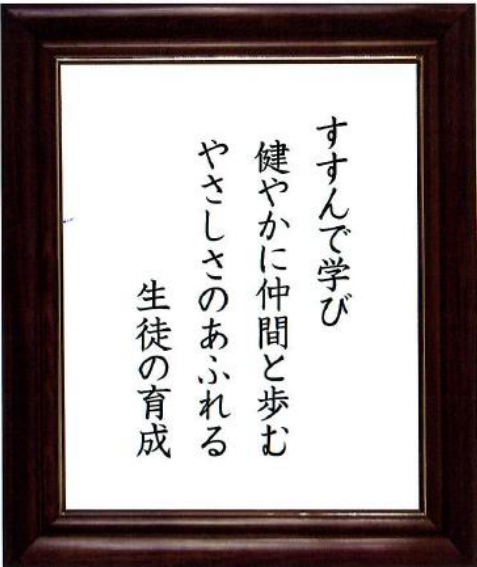 すすんで学び
健やかに仲間と歩む
やさしさのあふれる
生徒の育成